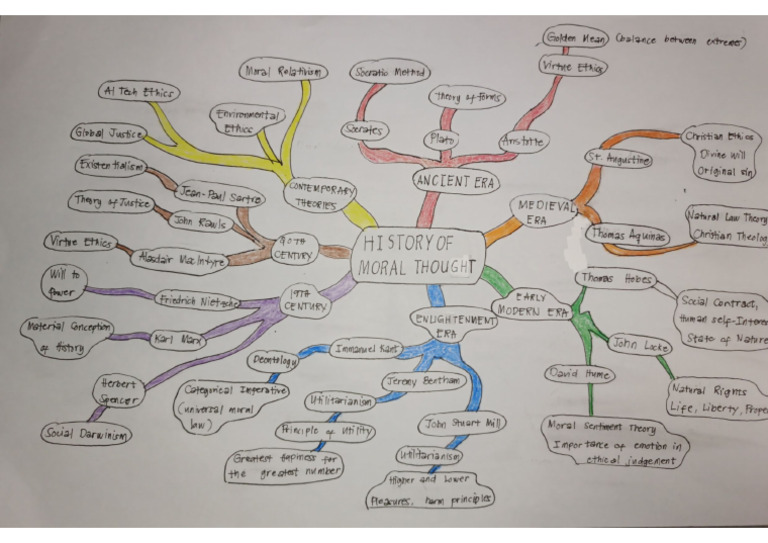 HISTORY OF
MORAL THOUGHT
ANCIENT ERA
Socrates
Socratic Method
Plato
Theory of Forms
Aristotle
Virtue Ethics
Golden Mean (balance between extremes)
MEDIEVAL
ERA
St. Augustine
Christian Ethics
Divine will
Original sin
Thomas Aquinas
Natural Law Theory
Christian Theolog
EARLY
MODERN ERA
Thomas Hobes
Social Contract,
Human self-Interes
State of Nature
John Locke
Natural Rights
Life, Liberty, Prope
David Hume
Moral Sentiment Theory
Importance of emotion in
ethical judgement
ENLIGHTENMENT
ERA
Immanuel Kant
Deontology
Categorical Imperative
(universal moral
law)
Jeremy Bentham
Utilitarianism
Principle of Utility
Greatest hapiness for
the greatest number
John Stuart Mill
Utilitarianism
Higher and Lower
Pleasures, harm principles
19TH
CENTURY
Friedrich Nietzsche
Will to
Power
Karl Marx
Material Conception
of History
Herbert
Spencer
Social Darwinism
CENTURY
Jean-Paul Sartre
Existentialism
John Rawls
Theory of Justice
Alasdair MacIntyre
Virtue Ethics
CONTEMPORARY
THEORIES
Global Justice
AI Tech Ethics
Environmental
Ethics
Moral Relativism